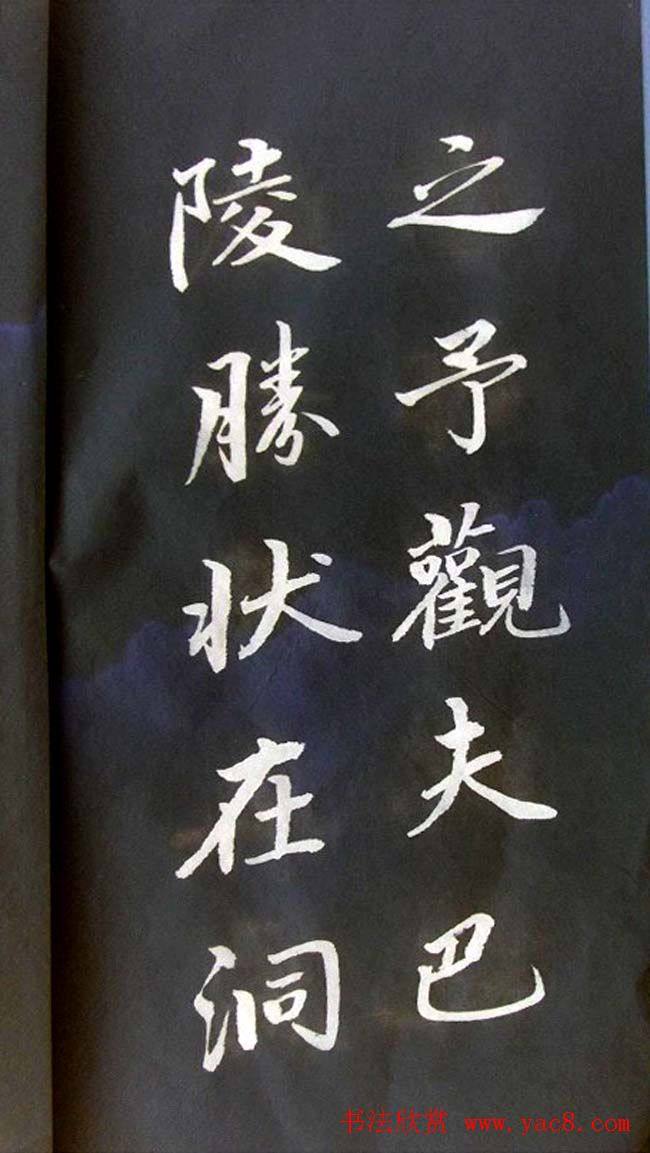 之予觀夫巴
陵勝状在洞
书法欣赏 www.yac8.com